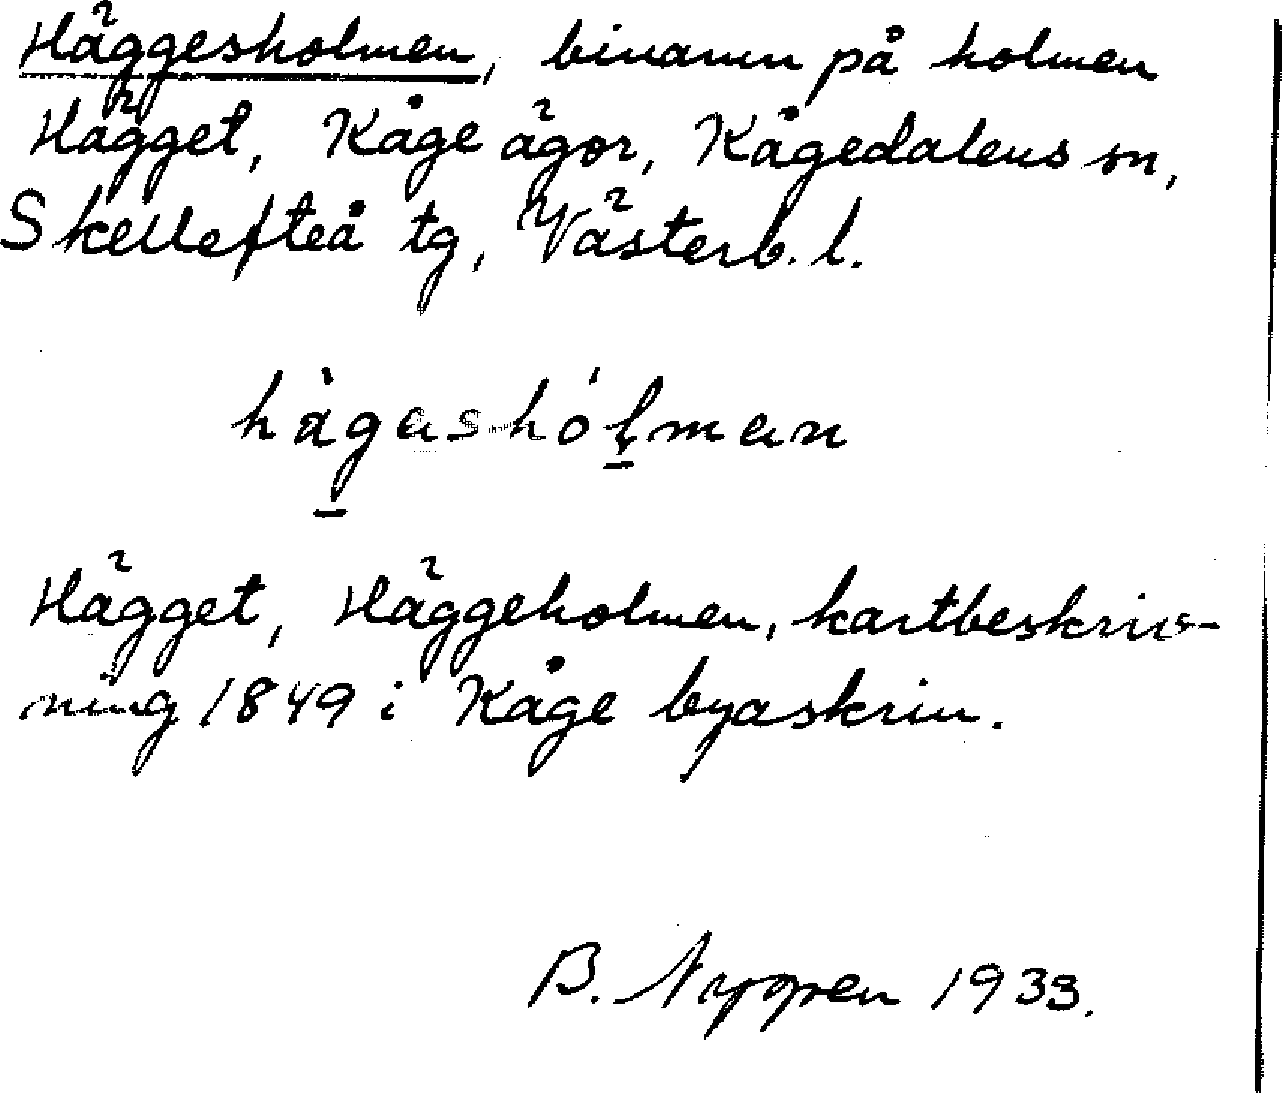 Häggesholmen, binamn på holmen
Hägget, Kåge ägor, Kågedalens sn,
Skellefteå tg, Västerb. l.
hàgashólman
Hägget, Häggeholmen, kartbeskriv-
ning 1849 i Kåge byaskrin.
B. Nygren 1933.